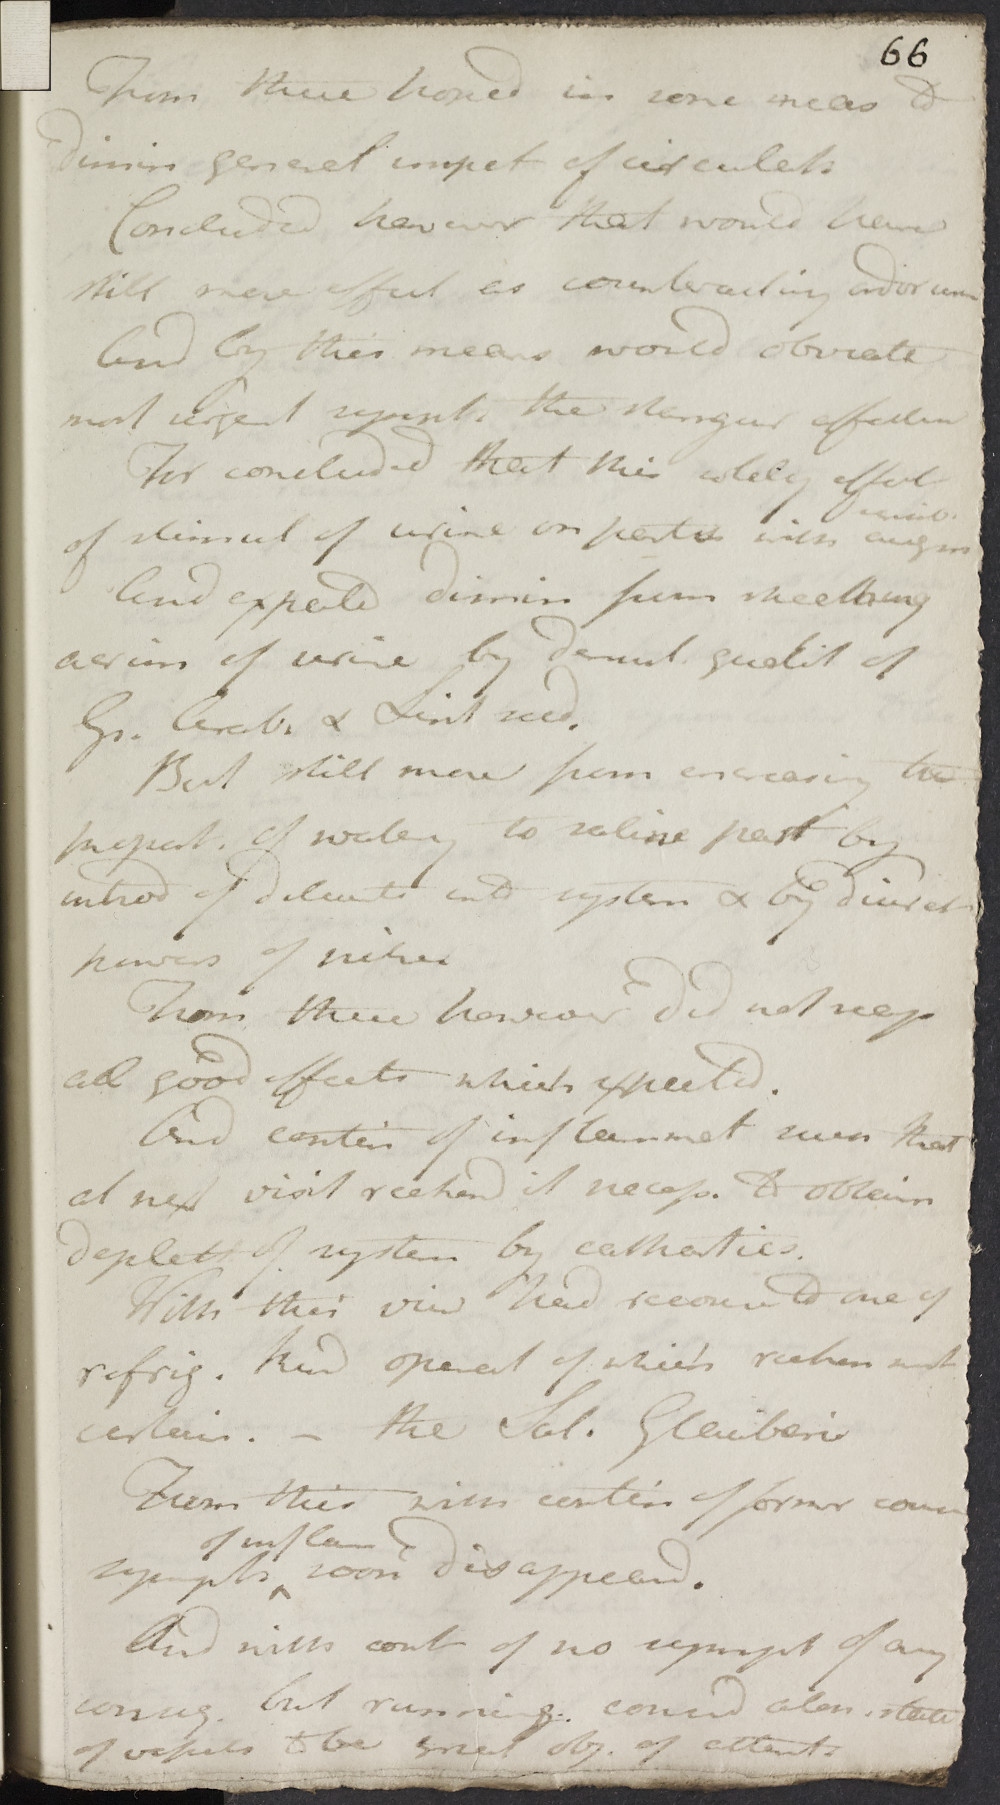 66
From these hoped in some meas to
dimin general impet of circulatn
Concluded however that would have
still more effect as counteracting ardor urin
And by this means would obviate
most urgent sympt. the stranguri affection
For concluded that this solely effect
of stimul of urine on parts with augm
sensib.
And expected dimin from sheathing
acrim of urine by demul. qualit of
Gr. Arab. & Lint seed.
But still more from encreasing the
proport. of watery to saline part by
introd of diluents into system & by diuret
powers of nitre
From these however did not reap
all good effects which expected.
And contin of inflammat such that
at next visit reckond it necess. to obtain
deplet of system by cathartics.
With this view had recourse to one of
refrig. kind operat of which reckon most
certain. – the Sal. Glauberi
From this with contin of former course
of inflam
sympts ^ soon disappeard.
And with cont of no sympt of any
conseq. but running. considd state
of vessels to be great obj. of attent